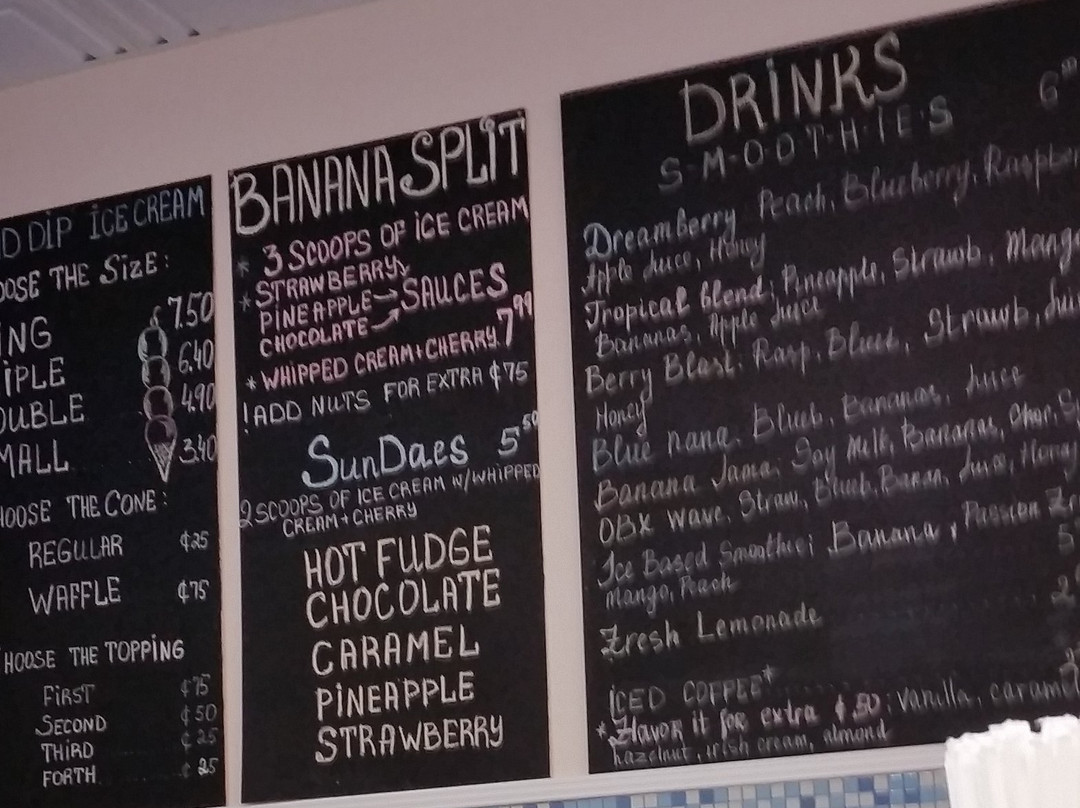 D DIP iCE CREAM
OOSE THE SiZE:
NG 7.50
iPLE 6.40
OUBLE 4.90
MALL 3.40
HOOSE THE CONE:
REGULAR ¢25
WAFFLE ¢75
HOOSE THE TOPPiNG
FiRST ¢75
SECOND ¢50
THiRD ¢25
FORTH ¢25
BANANA SPLiT
* 3 SCOOPS OF iCE CREAM
* STRAWBERRY
PiNEAPPLE SAUCES
CHOCOLATE
* WHiPPED CREAM+CHERRY 7.99
! ADD NUTS FOR EXTRA ¢75
SunDaes 5.50
2 SCOOPS OF ICE CREAM W/WHIPPED
CREAM+CHERRY
HOT FUDGE
CHOCOLATE
CARAMEL
PiNEAPPLE
STRAWBERRY
DRiNKS
S-M-O-O-T-H-I-E-S 6
Dreamberry Peach, Blueberry, Raspber
Apple Juice, Honey
Tropical blend: Pineapple, Strawb, Mango
Bananas, Apple Juice
Berry Blast: Rasp, Blueb, Strawb, Jui
Honey
Blue nana. Blueb, Bananas, Juice
Banana Jama: Soy Milk, Bananas,
OBX Wave, Straw, Blueb, Banan, Juice, Honey
Ice Based Smoothie: Banana, Passion Fr
Mango, Peach 5
Fresh Lemonade 2
iCED COFFEE*
*Flavor it for extra ¢50: vanilla, caramel
hazelnut, irish cream, almond